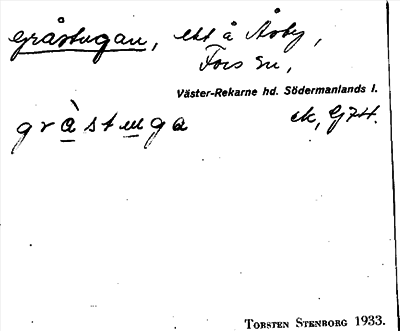 Gråstugan, ett å Åsby,
Fors sn,
Väster-Rekarne hd. Södermanlands l.
gråstuga ek, G74.
TORSTEN STENBORG 1933.